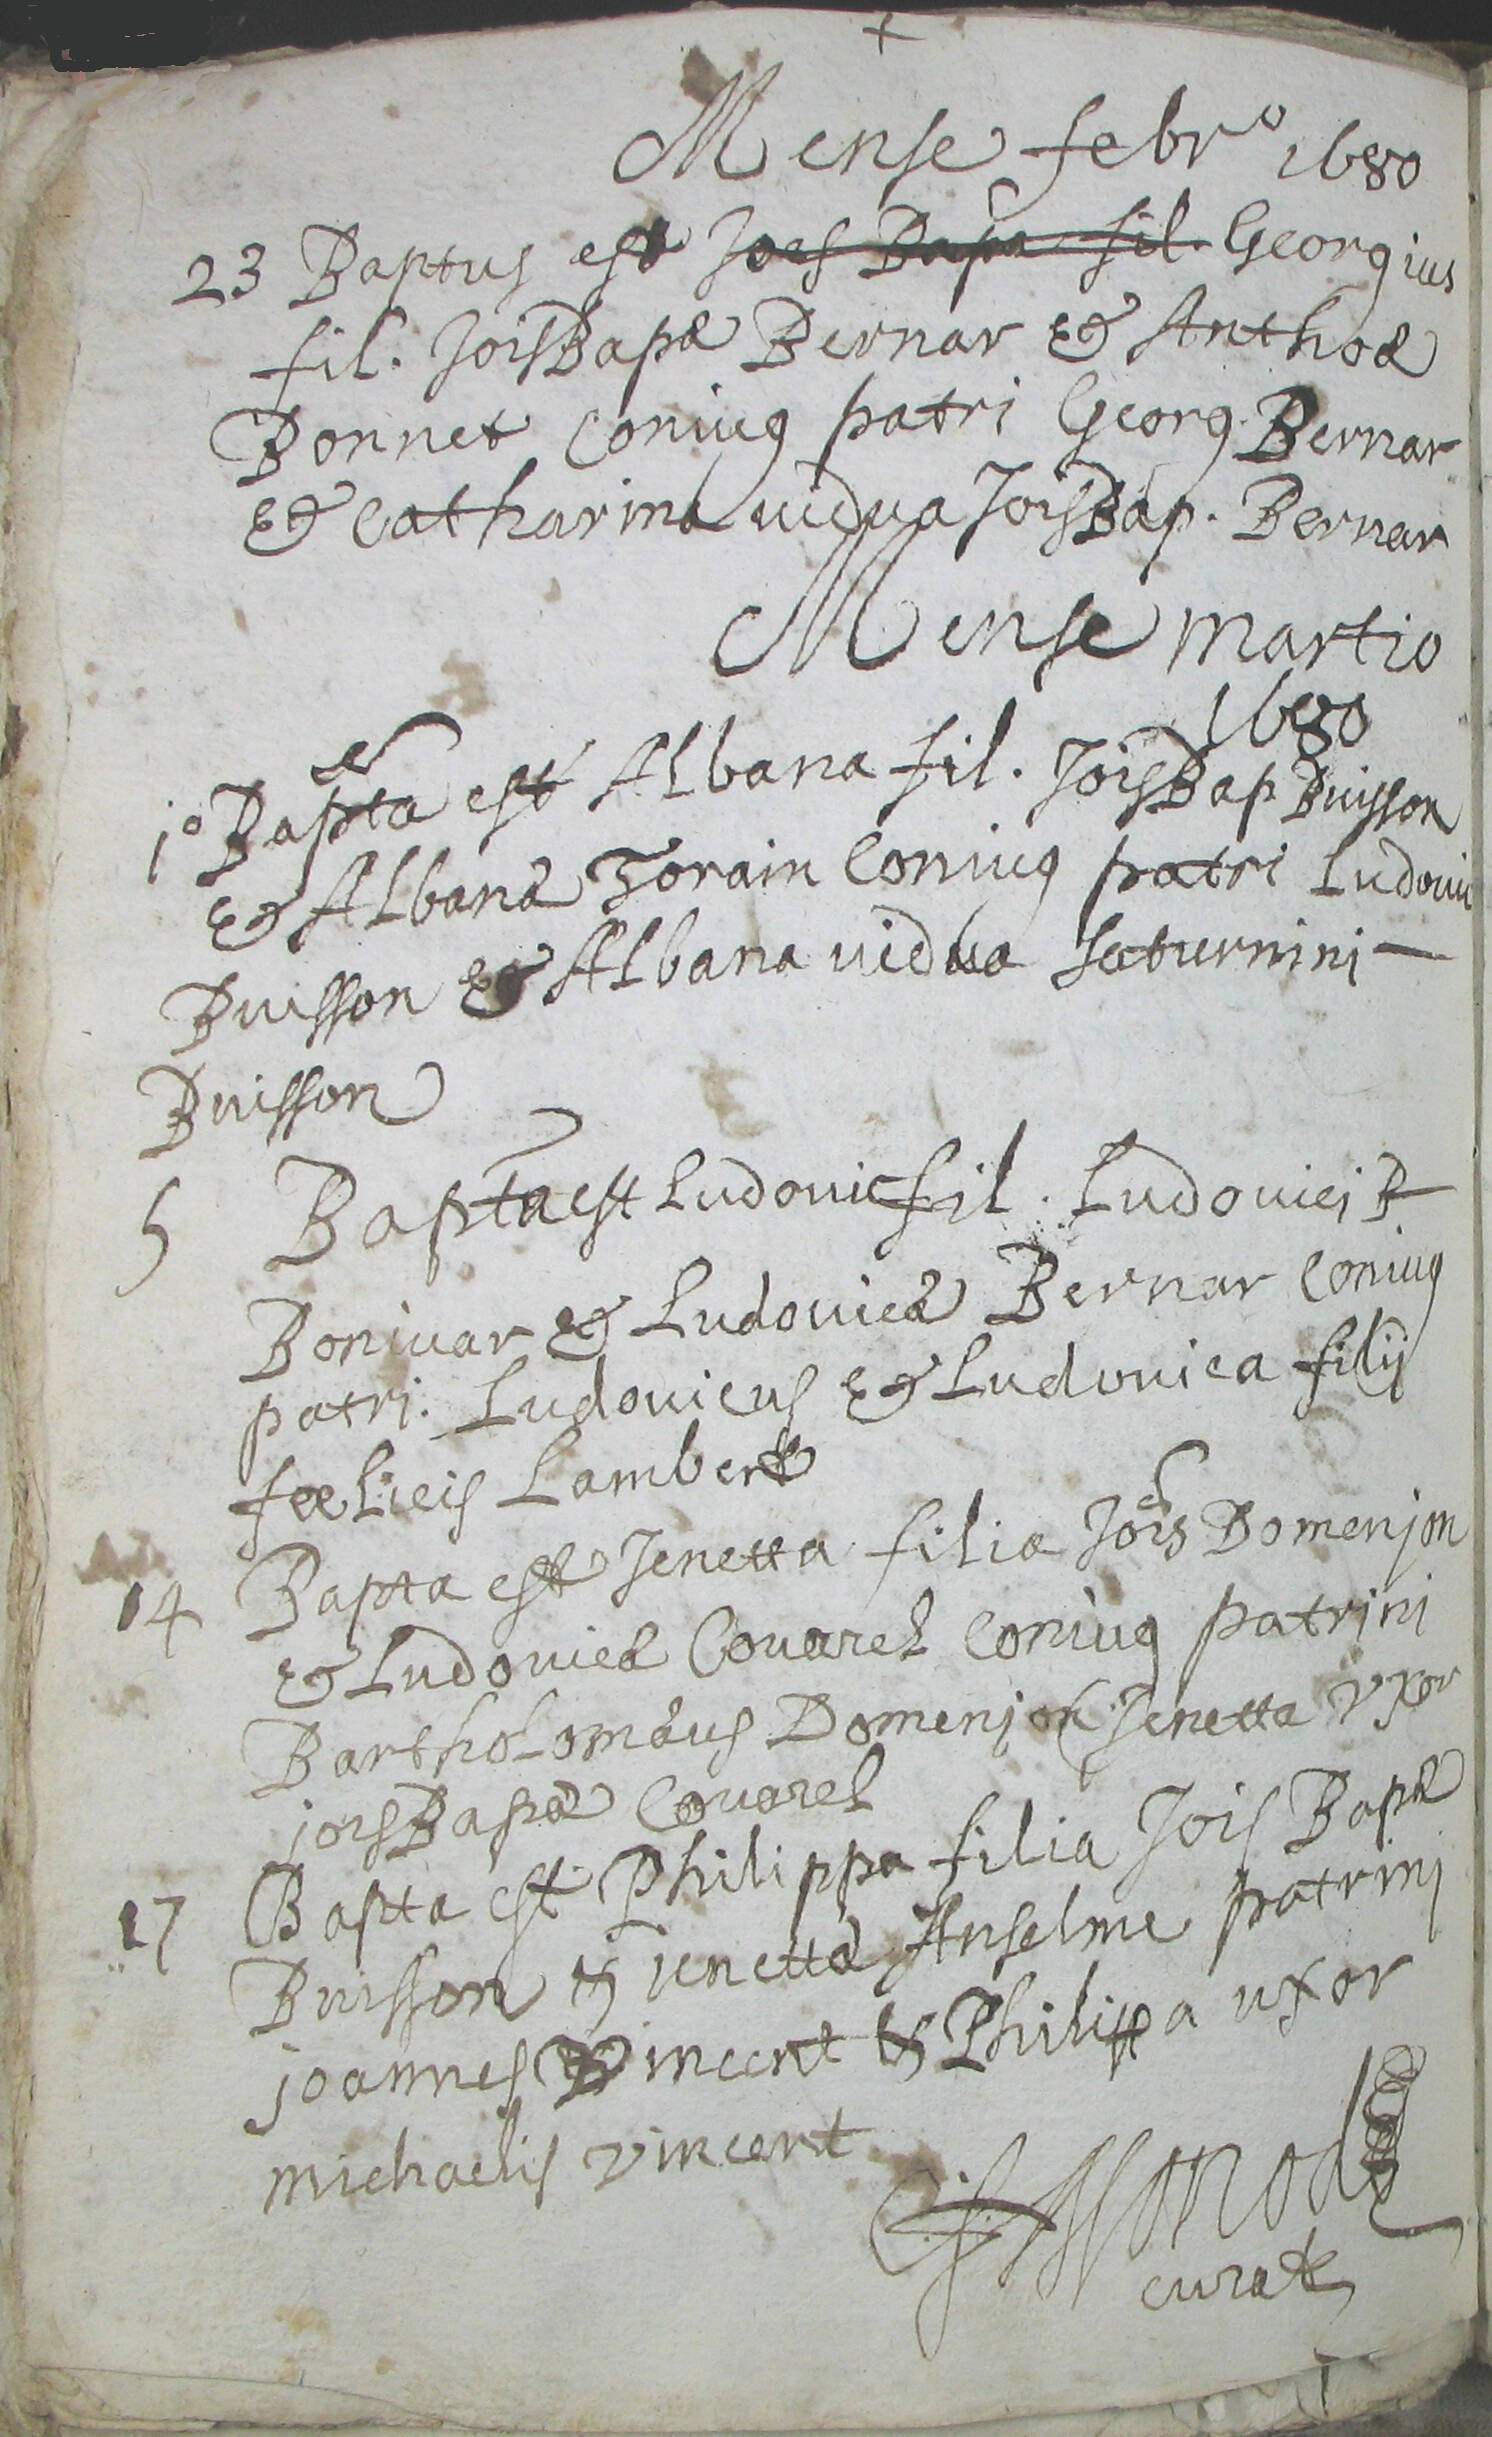 Mense febr° 1680
23 Baptus est Joes Bapa fil. Georgius
fil. JoisBapæ Bernar & Anthoæ
Bonnet Coniug patri Georg. Bernar
& Catharina vidua JoisBap. Bernar
Mense martio
1680
1° Bapta est Albana fil. JoisBap Buisson
& Albanæ Torain Coniug patri Ludovic
Buisson & Albana vidua Saturnini —
Buisson
5 Bapta est Ludovic fil. Ludovici B
Bonivar & Ludovicæ Bernar Coniug
patri. Ludovicus & Ludovica filij
fœlicis Lambert
14 Bapta est Jenetta filia Jois Domenjon
& Ludovicæ Covarel Coniug patrini
Bartholomæus Domenjon Jenetta Vxor
joisBapæ Covarel
17 Bapta est Philippa filia Jois Bapæ
Buisson & jenettæ Anselme patrinj
joannes Vincent & Philippa uxor
michaelis vincent
curate